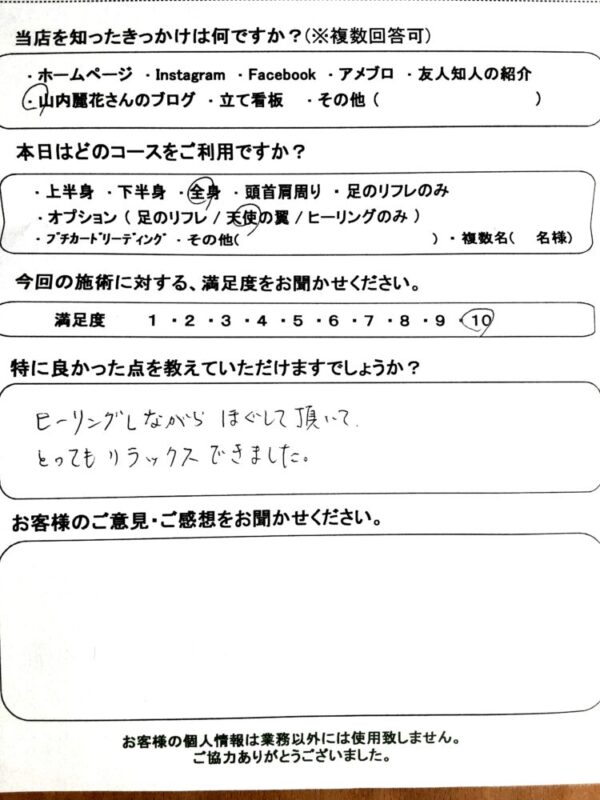 当店を知ったきっかけは何ですか?(※複数回答可)
・ホームページ ・Instagram ・Facebook ・アメブロ ・友人知人の紹介
・山内麗花さんのブログ ・立て看板 ・その他 ( )
本日はどのコースをご利用ですか?
・上半身 ・下半身 ・全身 ・頭首肩周り ・足のリフレのみ
・オプション ( 足のリフレ / 天使の翼 / ヒーリングのみ )
・プチカードリーディング ・その他( ) ・複数名( 名様)
今回の施術に対する、満足度をお聞かせください。
満足度 1 ・2 ・3 ・4 ・5 ・6 ・7 ・8 ・9 ・10
特に良かった点を教えていただけますでしょうか?
ヒーリングしながら ほぐして頂いて、
とってもリラックスできました。
お客様のご意見・ご感想をお聞かせください。
お客様の個人情報は業務以外には使用致しません。
ご協力ありがとうございました。